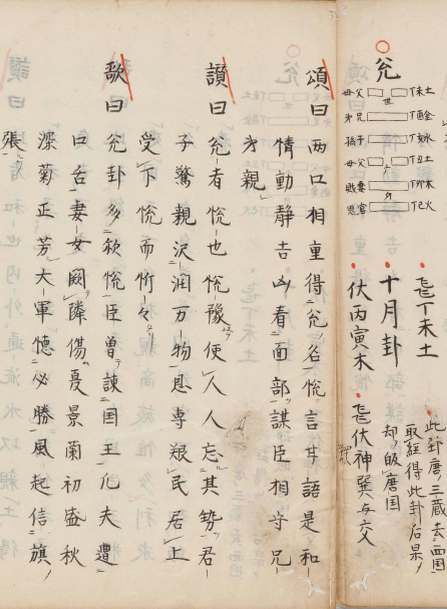 兊
父母 世 丁未土
兄弟 丁酉金
子孫 丁亥水
父母 丁丑土
妻財 丁卯木
官鬼 丁巳火
飛丁未土
此卦唐三蔵去西国
取経得此卦后果
却皈唐国
十月卦
飛伏神巽与交
伏丙寅木
頌曰两口相重得兊名悦言甘語是和
情動静吉凶看面部謀臣相守兄
弟親
讃曰兊者悦也悦豫便人人忘其勢君
子親沢潤万物専艱民居上
受下悦而忻々
歌曰兊卦多欽悦臣曽諫国王化夫遭
口舌妻女闕隣傷憂景蘭初盛秋
深菊正芳大軍必勝風起信旗
張